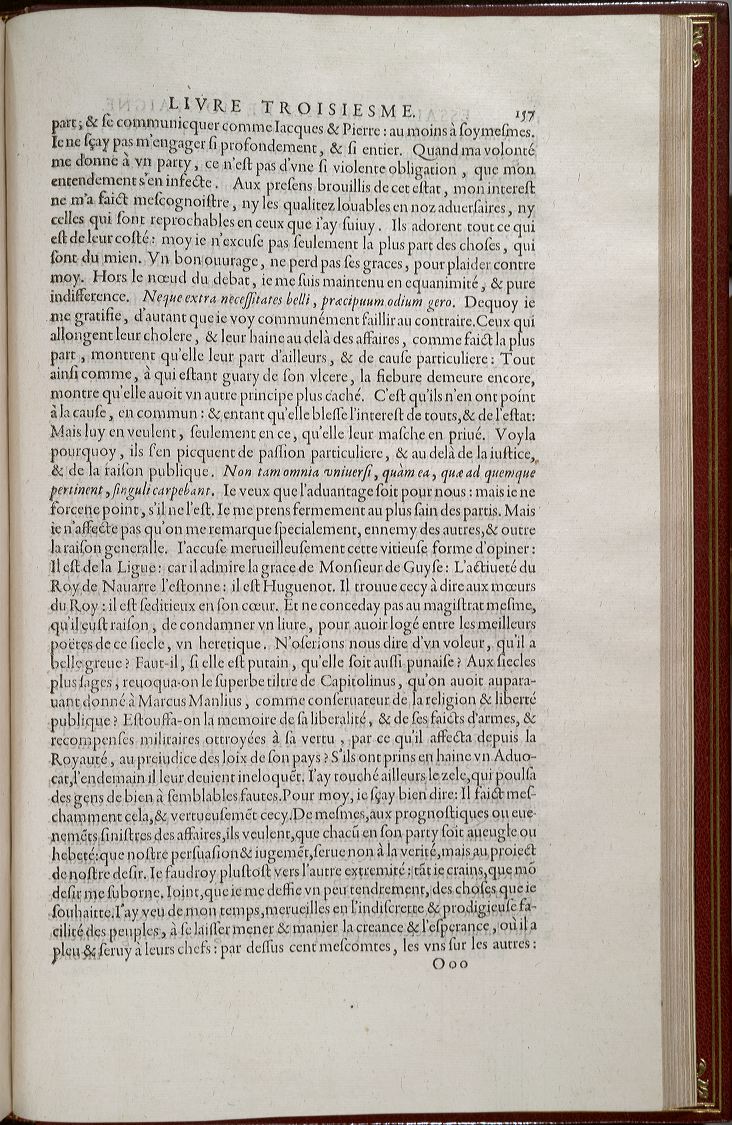 LIVRE TROISIESME. 157
part; & ſe communicquer comme Iacques & Pierre : au moins à ſoymeſmes.
Ie ne ſçay pas m'engager ſi profondement, & ſi entier. Quand ma volonté
me donne à vn party, ce n'eſt pas d'vne ſi violente obligation, que mon
entendement s'en infecte. Aux preſens brouillis de cet eſtat, mon intereſt
ne m'a faict meſcognoiſtre, ny les qualitez louables en noz aduerſaires, ny
celles qui ſont reprochables en ceux que i'ay ſuiuy. Ils adorent tout ce qui
eſt de leur coſté : moy ie n'excuſe pas ſeulement la plus part des choſes, qui
ſont du mien. Vn bon ouurage, ne perd pas ſes graces, pour plaider contre
moy. Hors le nœud du debat, ie me ſuis maintenu en equanimité, & pure
indifference. Neque extra neceſſitates belli, præcipuum odium gero. Dequoy ie
me gratifie, d'autant que ie voy communément faillir au contraire. Ceux qui
allongent leur cholere, & leur haine au delà des affaires, comme faict la plus
part, montrent qu'elle leur part d'ailleurs, & de cauſe particuliere : Tout
ainſi comme, à qui eſtant guary de ſon vlcere, la fiebure demeure encore,
montre qu'elle auoit vn autre principe plus caché. C'eſt qu'ils n'en ont point
à la cauſe, en commun : & entant qu'elle bleſſe l'intereſt de touts, & de l'eſtat:
Mais luy en veulent, ſeulement en ce, qu'elle leur maſche en priué. Voyla
pourquoy, ils s'en picquent de paſſion particuliere, & au delà de la iuſtice,
& de la raiſon publique. Non tam omnia vniuerſi, quàm ea, quæ ad quemque
pertinent, ſinguli carpebant. Ie veux que l'aduantage ſoit pour nous : mais ie ne
forcene point, s'il ne l'eſt. Ie me prens fermement au plus ſain des partis. Mais
ie n'affecte pas qu'on me remarque ſpecialement, ennemy des autres, & outre
la raiſon generalle. I'accuſe merueilleuſement cette vitieuſe forme d'opiner :
Il eſt de la Ligue : car il admire la grace de Monſieur de Guyſe : L'actiueté du
Roy de Nauarre l'eſtonne : il eſt Huguenot. Il trouue cecy à dire aux mœurs
du Roy : il eſt ſeditieux en ſon cœur. Et ne conceday pas au magiſtrat meſme,
qu'il euſt raiſon, de condamner vn liure, pour auoir logé entre les meilleurs
poëtes de ce ſiecle, vn heretique. N'oſerions nous dire d'vn voleur, qu'il a
belle greue ? Faut-il, ſi elle eſt putain, qu'elle ſoit auſſi punaiſe ? Aux ſiecles
plus ſages, reuoqua-on le ſuperbe tiltre de Capitolinus, qu'on auoit aupara-
uant donné à Marcus Manlius, comme conſeruateur de la religion & liberté
publique ? Eſtouffa-on la memoire de ſa liberalité, & de ſes faicts d'armes, &
recompenſes militaires ottroyées à ſa vertu, par ce qu'il affecta depuis la
Royauté, au preiudice des loix de ſon pays ? S'ils ont prins en haine vn Aduo-
cat, l'endemain il leur deuient ineloquẽt. I'ay touché ailleurs le zele, qui pouſſa
des gens de bien à ſemblables fautes. Pour moy, ie ſçay bien dire : Il faict meſ-
chamment cela, & vertueuſemẽt cecy. De meſmes, aux prognoſtiques ou eue-
nemẽts ſiniſtres des affaires, ils veulent, que chacũ en ſon party ſoit aueugle ou
hebeté: que noſtre perſuaſion & iugemẽt, ſerue non à la verité, mais au proiect
de noſtre deſir. Ie faudroy pluſtoſt vers l'autre extremité : tãt ie crains, que mõ
deſir me ſuborne. Ioint, que ie me deffie vn peu tendrement, des choſes que ie
ſouhaitte. I'ay veu de mon temps, merueilles en l'indiſcrette & prodigieuſe fa-
cilité des peuples, à ſe laiſſer mener & manier la creance & l'eſperance, où il a
pleu & ſeruy à leurs chefs : par deſſus cent meſcomtes, les vns ſur les autres :
Ooo